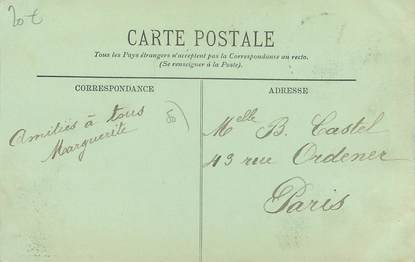 20 €
CARTE POSTALE
Tous les Pays étrangers n'acceptent pas la Correspondance au recto.
(Se renseigner à la Poste).
CORRESPONDANCE
ADRESSE
Amitiés à tous
Marguerite
Melle B. Castel
43 rue Ordener
Paris